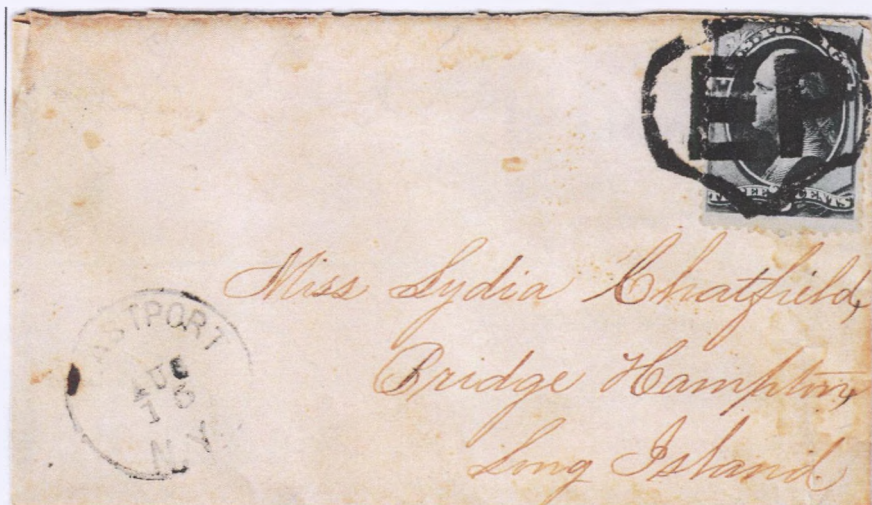 EP
THREE CENTS
Miss Lydia Chatfield,
Bridge Hampton,
Long Island.
EASTPORT
AUG
16
N.Y.